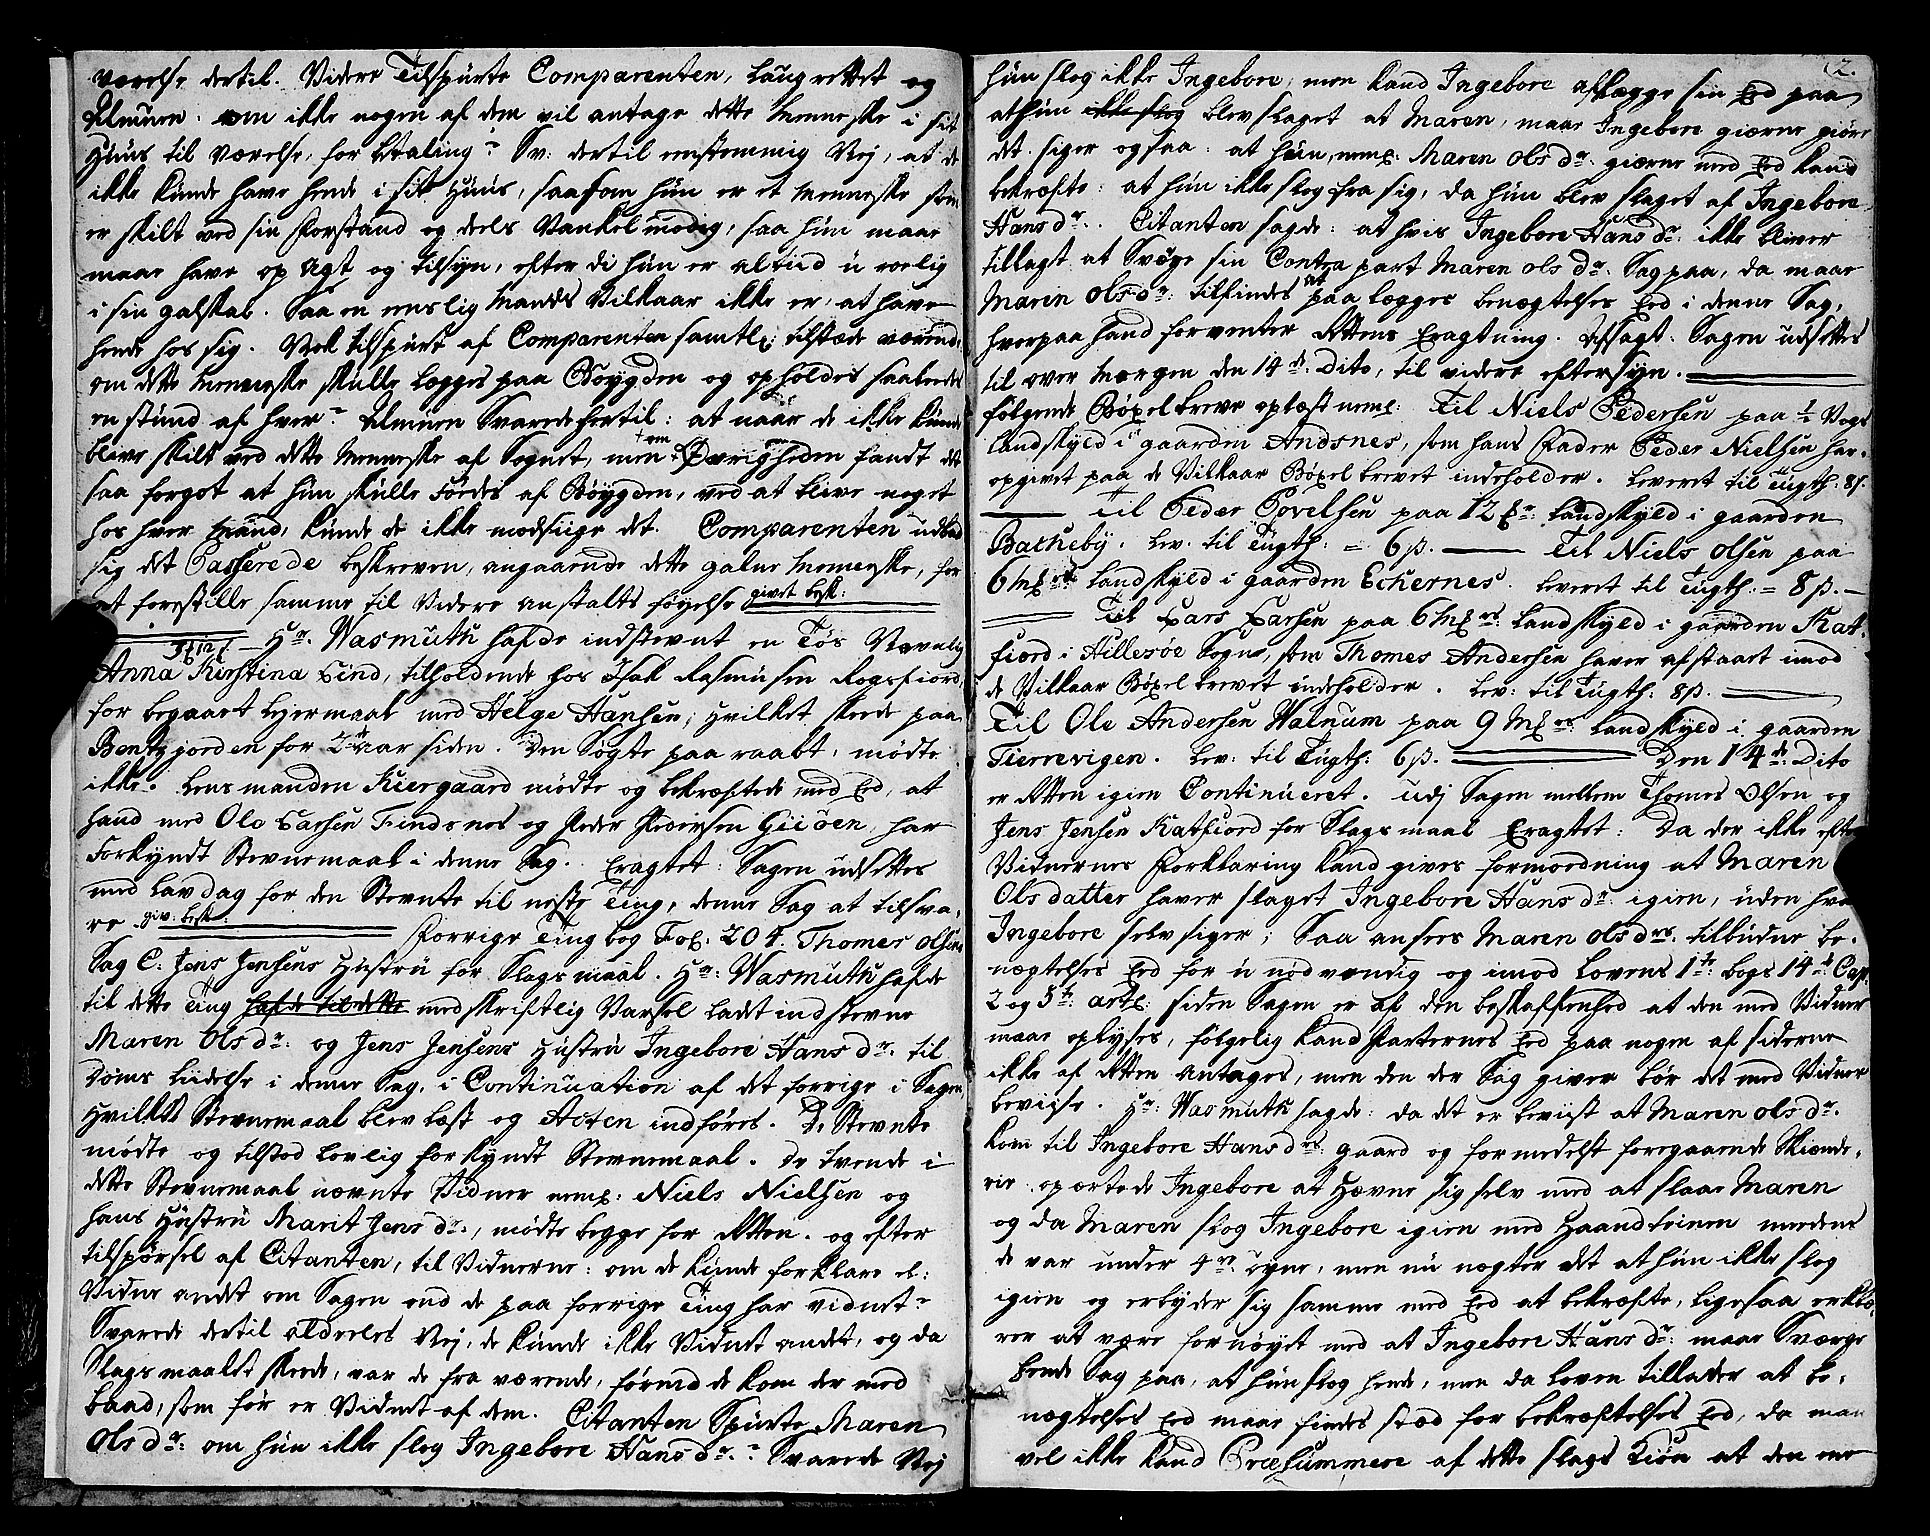 værelse dertil. Videre Tilspurte Comparenten, Laugrettet og
Almuen. om ikke nogen af dem vil antage dette Menneske i sit
Huus til værelse, for betaling? Sv: dertil eenstemmig Nej, at de
ikke kunde have hende i sit Huus, saasom hun er et Menneske som
er skilt ved sin Forstand og deels Vankelmodig, saa hun maae
maae have op agt og tilsyn, efter di hun er altiid u roelig
i sin galskab. Saa en enslig Mands Vilkaar ikke er, at have
hende hos sig. Vel tilspurt af Comparenten samtl: tilstæde værende,
om dette Menneske skulle legges paa Bøygden og opholdes saaledes
en stund af hver? Almuen Svarede hertil: at naar de ikke kunde
blive skilt ved dette Menneske af Sognet, men Øvrigheden fandt det
saa forgot at hun skulle Fødes af Bøygden, ved at blive noget
hos hver Mand, kunde de ikke modsiige det. Comparenten udbad
sig det Passerede beskreven, angaaende dette galne Menneske, for
at forestille samme til Videre anstalts føyelse givet besk:
Hr. Wasmuth hafde indstevnt en Tøs Navnlig
Anna Kirstina Lind, tilholdende hos Isak Rasmusen Rogsfiord,
for begaaet Lejermaal med Helge Hansen, hvilket skede paa
Bentzjorden for 2de aar siden. Den Søgte paa raabt, mødte
ikke. Lensmanden Kiergaard mødte og bekræftede med Eed, at
hand med Ole Larsen Findsnes og Peder Pedersen Giisøen, har
Forkyndt Stevnemaal i denne Sag. Eragtet: Sagen udsettes
med Lavdag for den Stevnte til neste Ting, denne Sag at tilsva-
re. giv: besk:
Forrige Ting bog Fol: 204. Thomes Olsens
Sag C: Jens Jensens Hustru for Slagsmaal. Hr: Wasmuth hafde
til dette Ting hafde til dette med skriftlig Varsel ladet indstevne
Maren Olsdr: og Jens Jensens Hustru Ingebore Hansdr. til
Doms Liidelse i denne Sag, i Continuation af det forrige i Sagen,
hvilket Stevnemaal blev læst og Acten indføres. De Stevnte
mødte og tilstod lovlig forkyndt Stevnemaal. De tvende i
dette Stevnemaal nævnte Vidner neml: Niels Nielsen og
hans Hustru Marit Jensdr:, mødte begge for Retten. og efter
tilspørsel af Citanten, til Vidnerne: om de kunde forklare el:
Vidne andet om Sagen end de paa forrige Ting har vidnet?
Svarede dertil aldeeles Nej, de kunde ikke Vidnet andet, og da
Slagsmaalet skede, var de fra værende, førend de kom der med
baad, som før er Vidnet af dem. Citanten Spurte Maren
Olsdr: om hun ikke slog Ingebore Hansdr.? Svarede Nej
2.
hun slog ikke Ingebore, men kand Ingebore aflægge sin Eed paa
at hun ikke slog blev slaget at Maren, maae Ingebore giærne giøre
det. siger ogsaa: at hun, neml: Maren Olsdr. giærne med Eed kand
bekræfte: at hun ikke slog fra sig, da hun blev slaget af Ingebore
Hansdr. Citanten sagde: at hvis Ingebore Hansdr: ikke bliver
tillagt at Sværge sin Contra part Maren Olsdr. Sag paa, da maae
Maren Olsdr: tilfindes at paa legges benægtelses Eed i denne Sag,
hvorpaa hand forventer Rettens Eragtning. Afsagt. Sagen udsettes
til over Morgen den 14de Dito, til videre eftersyn.
følgende Bøxelbreve oplæst neml: Til Niels Pedersen paa ½ Vogs
Landskyld i gaarden Andsnes, som hans Fader Peder Nielsen har
opgivet paa de Vilkaar Bøxelbrevet indeholder. Leveret til Tugth: 8ß.
Til Peder Povelsen paa 12 Landskyld i gaarden
Bakheby. Lev: til Tugth: = 6ß. Til Niels Olsen paa
6 Landskyld i gaarden Echernes. Leveret til Tugth: = 8ß.
Til Lars Larsen paa 6 Landskyld i gaarden Kat-
fiord i Hillesøe Sogn, som Thomes Andersen haver afstaaet imod
de Vilkaar Bøxelbrevet indeholder. Lev: til Tugth: 8ß.
Til Ole Andersen Walnum paa 9 Landskyld i gaarden
Tierrevigen. Lev: til Tugth: 6ß. Den 14de Dito
er Retten igien Continueret. udj Sagen mellem Thomes Olsen og
Jens Jensen Katfiord for Slagsmaal Eragtet: Da der ikke efter
Vidnernes Forklaring kand gives formoedning at Maren
Olsdatter haver slaget Ingebore Hansdr. igien, uden hvad
Ingebore selv siger; Saa ansees Maren Olsdrs. tilbudne be-
nægtelses Eed for u nødvendig og imod Lovens 1te bogs 14de Cap:
2 og 5te artl: siden Sagen er af den beskaffenhed at den med Vidner
maae oplyses, følgelig kand Parternes Eed paa nogen af siderne
ikke af Retten antages, men den der Sag giver bør det med Vidner
beviise. Hr: Wasmuth sagde: da det er beviist at Maren Olsdr.
kom til Ingebore Hansdrs: gaard og formedelst foregaaende Skiænde-
rie opærtede Ingebore at hævne sig selv med at slaae Maren
og da Maren slog Ingebore igien med Haandteinen medens
de var under 4re øyne, men nu negter det at hun ikke slog
igien og erbyder sig samme med Eed at bekræfte, ligesaa erklæ-
rer at være fornøyet med at Ingebore Hansdr: maae Sværge
hende Sag paa, at hun slog hende, men da Loven tillader at be-
nægtelses Eed maae findes sted for bekræftelses Eed, da man
vel ikke kand Præsummere af dette slags Kiøn at den eene